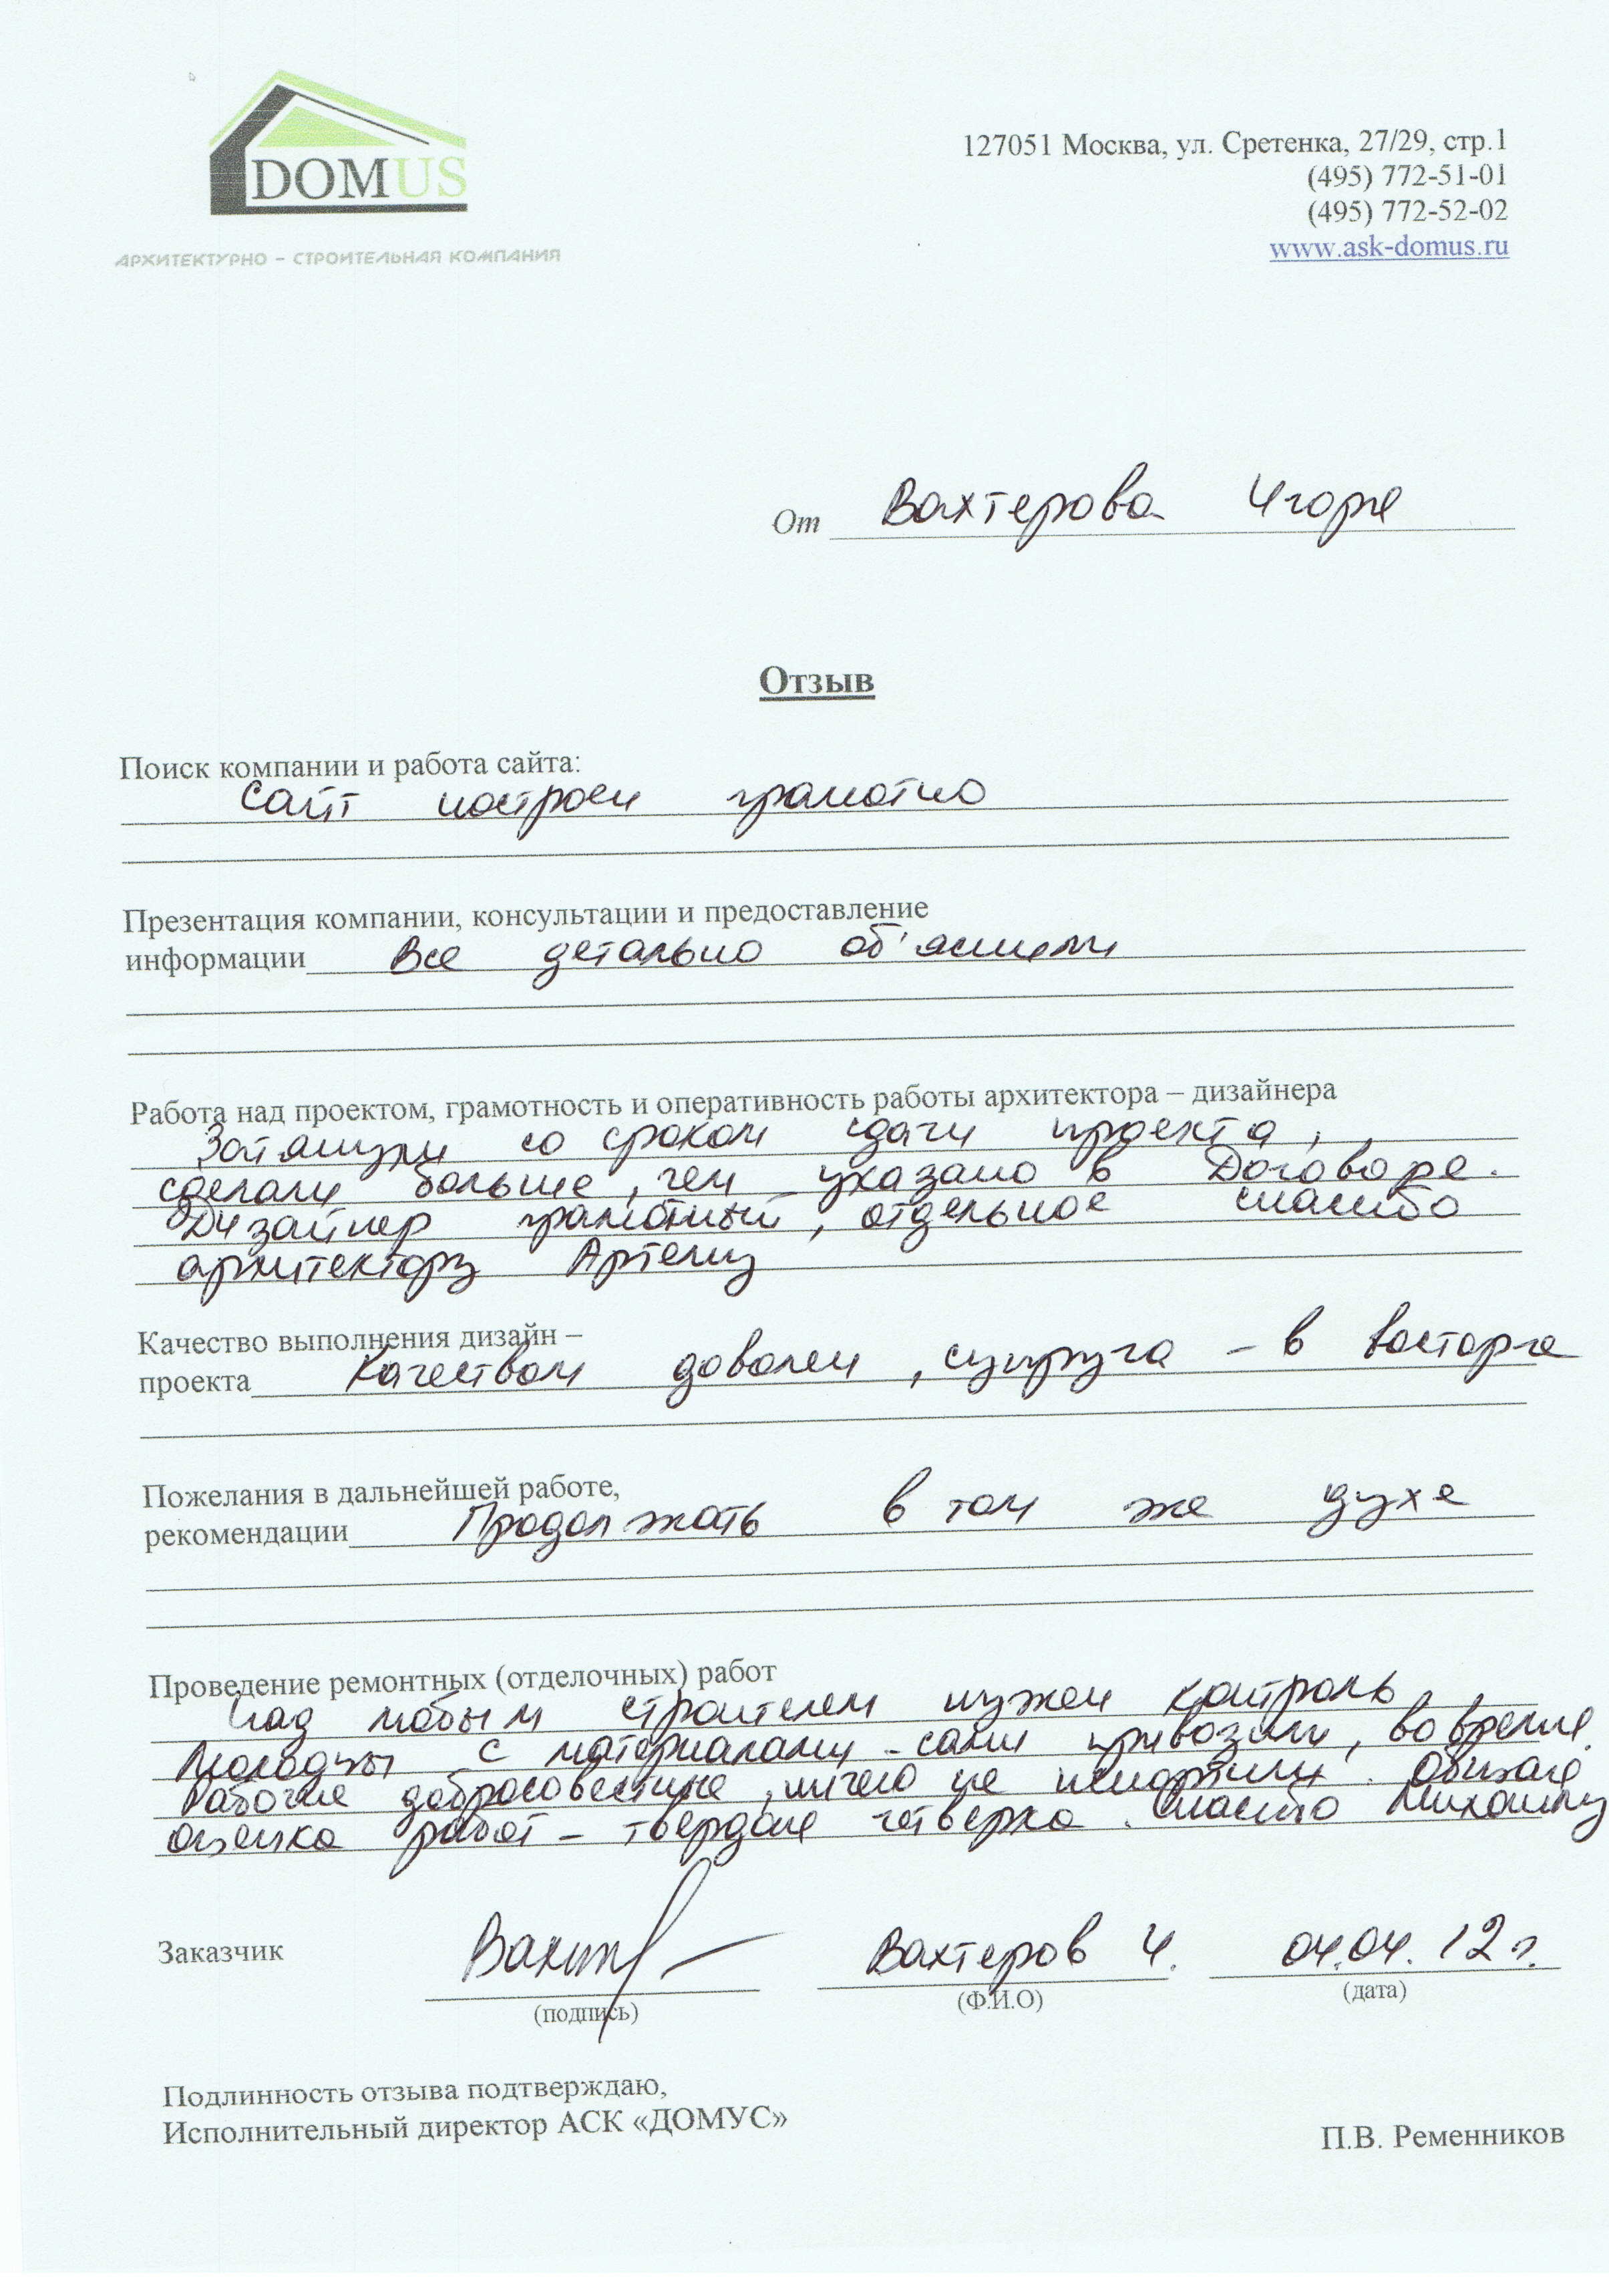 DOMUS
АРХИТЕКТУРНО – СТРОИТЕЛЬНАЯ КОМПАНИЯ
127051 Москва, ул. Сретенка, 27/29, стр.1
(495) 772-51-01
(495) 772-52-02
www.ask-domus.ru
От Вахтерова Игоря
Отзыв
Поиск компании и работа сайта:
Сайт построен грамотно
Презентация компании, консультации и предоставление
информации Все детально об'яснили
Работа над проектом, грамотность и оперативность работы архитектора – дизайнера
Затянули со сроком сдачи проекта,
сделали больше, чем указано в Договоре.
Дизайнер грамотный, отдельное спасибо
архитектору Артему
Качество выполнения дизайн –
проекта Качеством доволен, супруга – в восторге
Пожелания в дальнейшей работе,
рекомендации Продолжать в том же духе
Проведение ремонтных (отделочных) работ
Над любым строителем нужен контроль.
Молодцы с материалами – сами привозили, во время.
Рабочие добросовестные, ничего не испортили. Общая
оценка работ – твердая четверка. Спасибо Михаилу
Заказчик Вахтеров И. 04.04.12 г.
(подпись) (Ф.И.О) (дата)
Подлинность отзыва подтверждаю,
Исполнительный директор АСК «ДОМУС»
П.В. Ременников